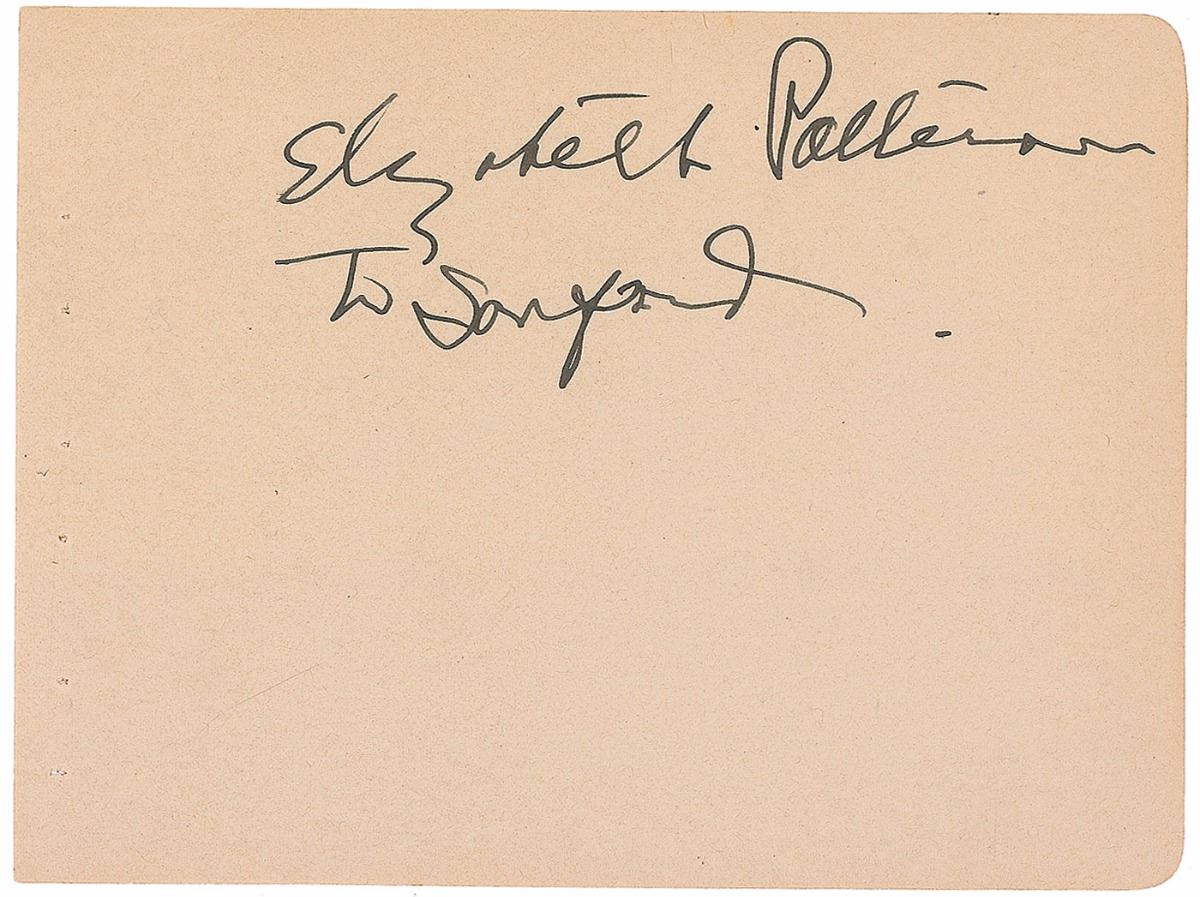 Elizabeth Patterson
To Sanford